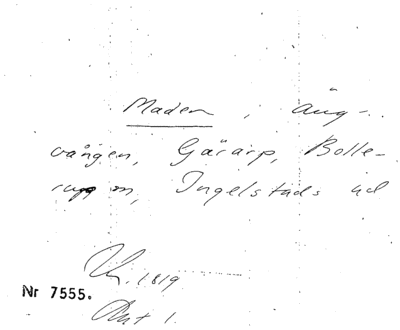 Maden, Äng-
vången, Gärarp, Bolle-
rup sn, Ingelstads hd
Nr 7555.
Ant 1.